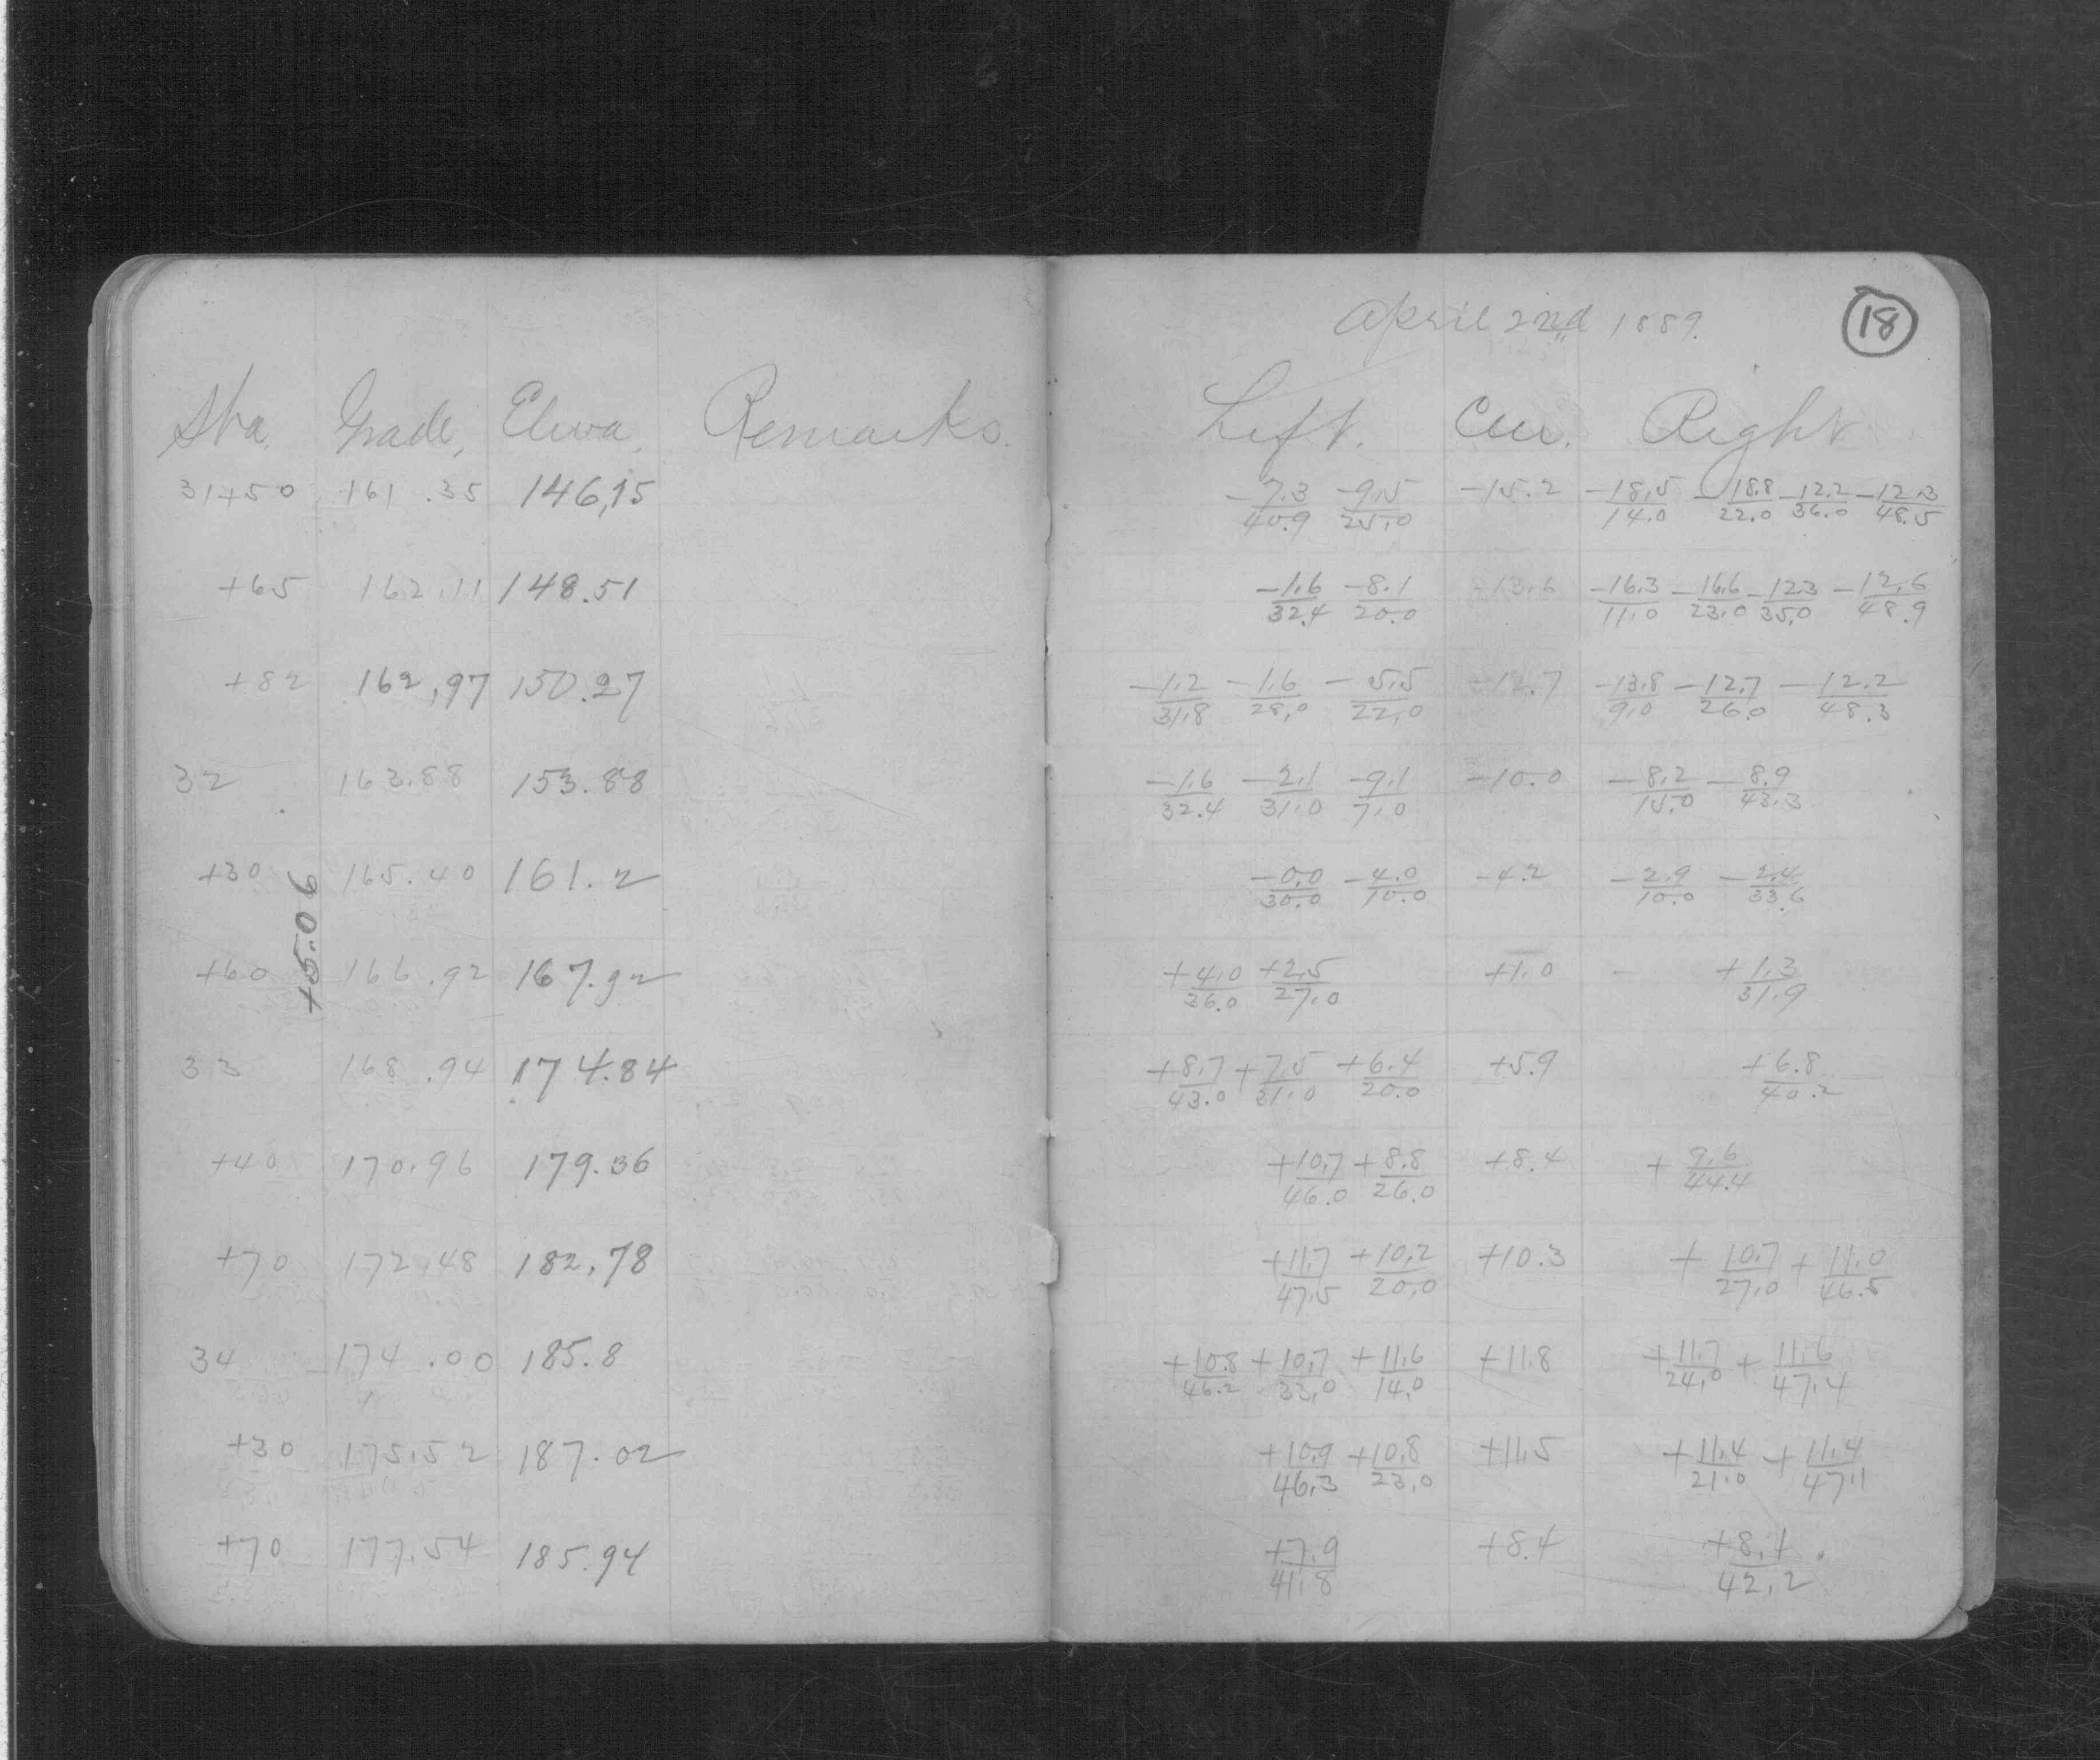 April 2nd 1889.
18
Sta. Grade, Eleva. Remarks. Left. Cen. Right
31+50 161.35 146.15 -7.3/40.9 -9.5/25.0 -15.2 -18.5/14.0 -18.8/22.0 -12.2/36.0 -12.3/48.5
+65 162.11 148.51 -1.6/32.4 -8.1/20.0 -13.6 -16.3/11.0 -16.6/23.0 -12.3/35.0 -12.6/48.9
+82 162.97 150.27 -1.2/31.8 -1.6/28.0 -5.5/22.0 -12.7 -13.8/9.0 -12.7/26.0 -12.2/48.3
32 163.88 153.88 -1.6/32.4 -2.1/31.0 -9.1/7.0 -10.0 -8.2/15.0 -8.9/43.3
+30 165.40 161.2 -0.0/30.0 -4.0/10.0 -4.2 -2.9/10.0 -2.4/33.6
+5.06
+60 166.92 167.92 +4.0/36.0 +2.5/27.0 +1.0 - +1.3/31.9
33 168.94 174.84 +8.7/43.0 +7.5/31.0 +6.4/20.0 +5.9 +6.8/40.2
+40 170.96 179.36 +10.7/46.0 +8.8/26.0 +8.4 +9.6/44.4
+70 172.48 182.78 +11.7/47.5 +10.2/20.0 +10.3 +10.7/27.0 +11.0/46.5
34 174.00 185.8 +10.8/46.2 +10.7/33.0 +11.6/14.0 +11.8 +11.7/24.0 +11.6/47.4
+30 175.52 187.02 +10.9/46.3 +10.8/23.0 +11.5 +11.4/21.0 +11.4/47.1
+70 177.54 185.94 +7.9/41.8 +8.4 +8.1/42.2